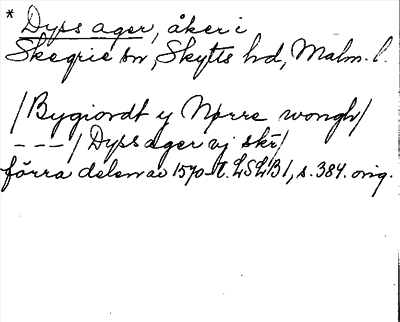 * Dyps ager, åker i
Skegrie sn, Skytts hd, Malm. l.
/Bygiordt y Nørre wongh/
---/Dyps ager vj skr/
förra delen av 1570-t. LSLB1, s. 384. orig.